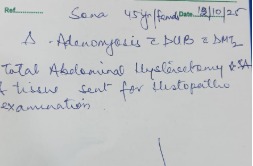 Ref.................... Sona 45yr/female Date 12/10/25
Δ - Adenomyosis c̄ DUB c̄ DMT2
Total Abdominal Hysterectomy & SA
tissue sent for Histopatho
examination.